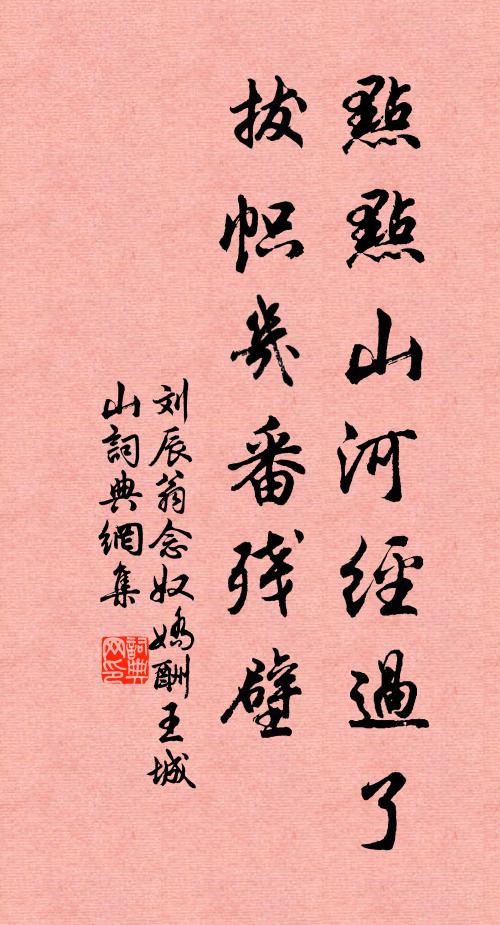 點點山河經過了
拔幟幾番残壁
刘辰翁念奴嬌酬王城
山詞典網集
詞典
网印